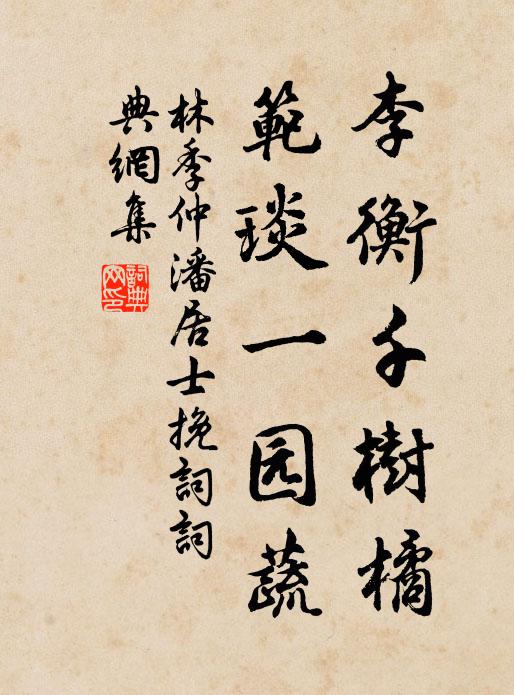 李衡千樹橘
範琰一园蔬
林季仲潘居士挽詞詞
典網集
詞典网印